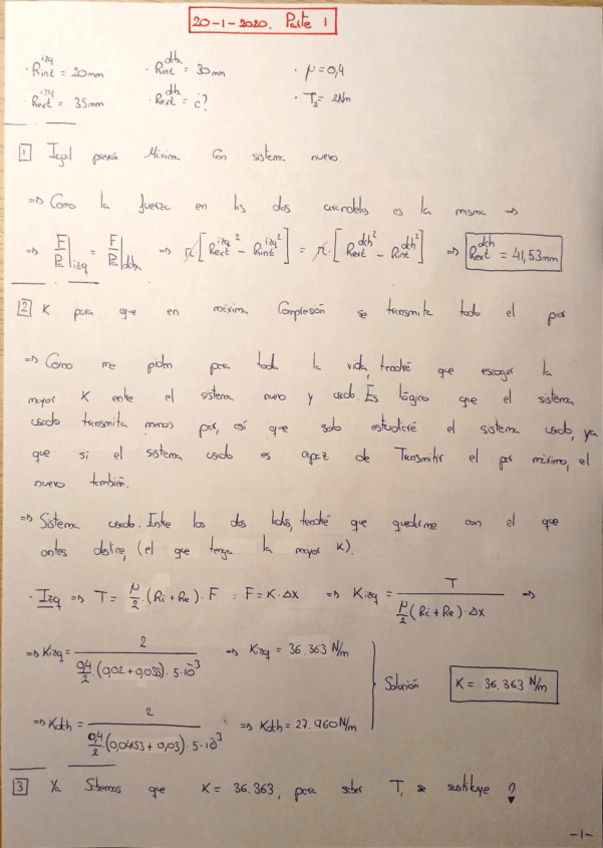 20-1-2020. Parte 1
· Rint^izq = 20mm · Rint^dch = 30mm · μ=0,4
· Rext^izq = 35mm · Rext^dch = ¿? · T₂= 2Nm
1 Igual presión Máxima Con sistema nuevo
=> Como la fuerza en las dos arandelas es la misma =>
=> F/Pa|izq = F/Pa|dch => π[Rext^izq² - Rint^izq²] = π·[Rext^dch² - Rint^dch²] => Rext^dch = 41,53mm
2 K para que en máxima Compresión se transmita todo el par
=> Como me piden para toda la vida, tendré que escoger la
mayor K entre el sistema nuevo y usado. Es lógico que el sistema
usado transmita menos par, así que solo estudiaré el sistema usado, ya
que si el sistema usado es capaz de Transmitir el par máximo, el
nuevo también.
=> Sistema usado. Entre los dos lados, tendré que quedarme con el que
antes deslice, (el que tenga la mayor K).
· Izq => T= μ/2·(Ri+Re)·F : F=K·Δx => Kizq = T / (μ/2(Ri+Re)·Δx) =>
=> Kizq = 2 / (0,4/2·(0,02+0,035)·5·10^-3) => Kizq = 36.363 N/m
Solución K = 36.363 N/m
=> Kdch = 2 / (0,4/2·(0,04153+0,03)·5·10^-3) => Kdch = 27.960 N/m
3 Ya Sabemos que K = 36.363, para saber T, se sustituye
-1-